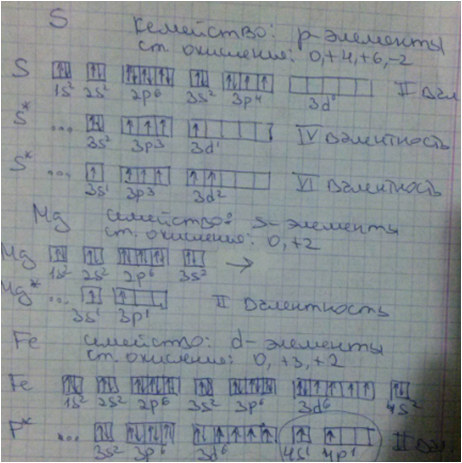 S Семейство: p-элементы
ст. окисления: 0,+4,+6,-2
S
1s² 2s² 2p⁶ 3s² 3p⁴ 3d° II вал
S* ... IV валентность
3s² 3p³ 3d¹
S* ... VI валентность
3s¹ 3p³ 3d²
Mg семейство: s-элементы
ст. окисления: 0,+2
Mg →
1s² 2s² 2p⁶ 3s²
Mg* ... II валентность
3s¹ 3p¹
Fe семейство: d-элементы
ст. окисления: 0, +3, +2
Fe
1s² 2s² 2p⁶ 3s² 3p⁶ 3d⁶ 4s²
F* ... II вал.
3s² 3p⁶ 3d⁶ 4s¹ 4p¹